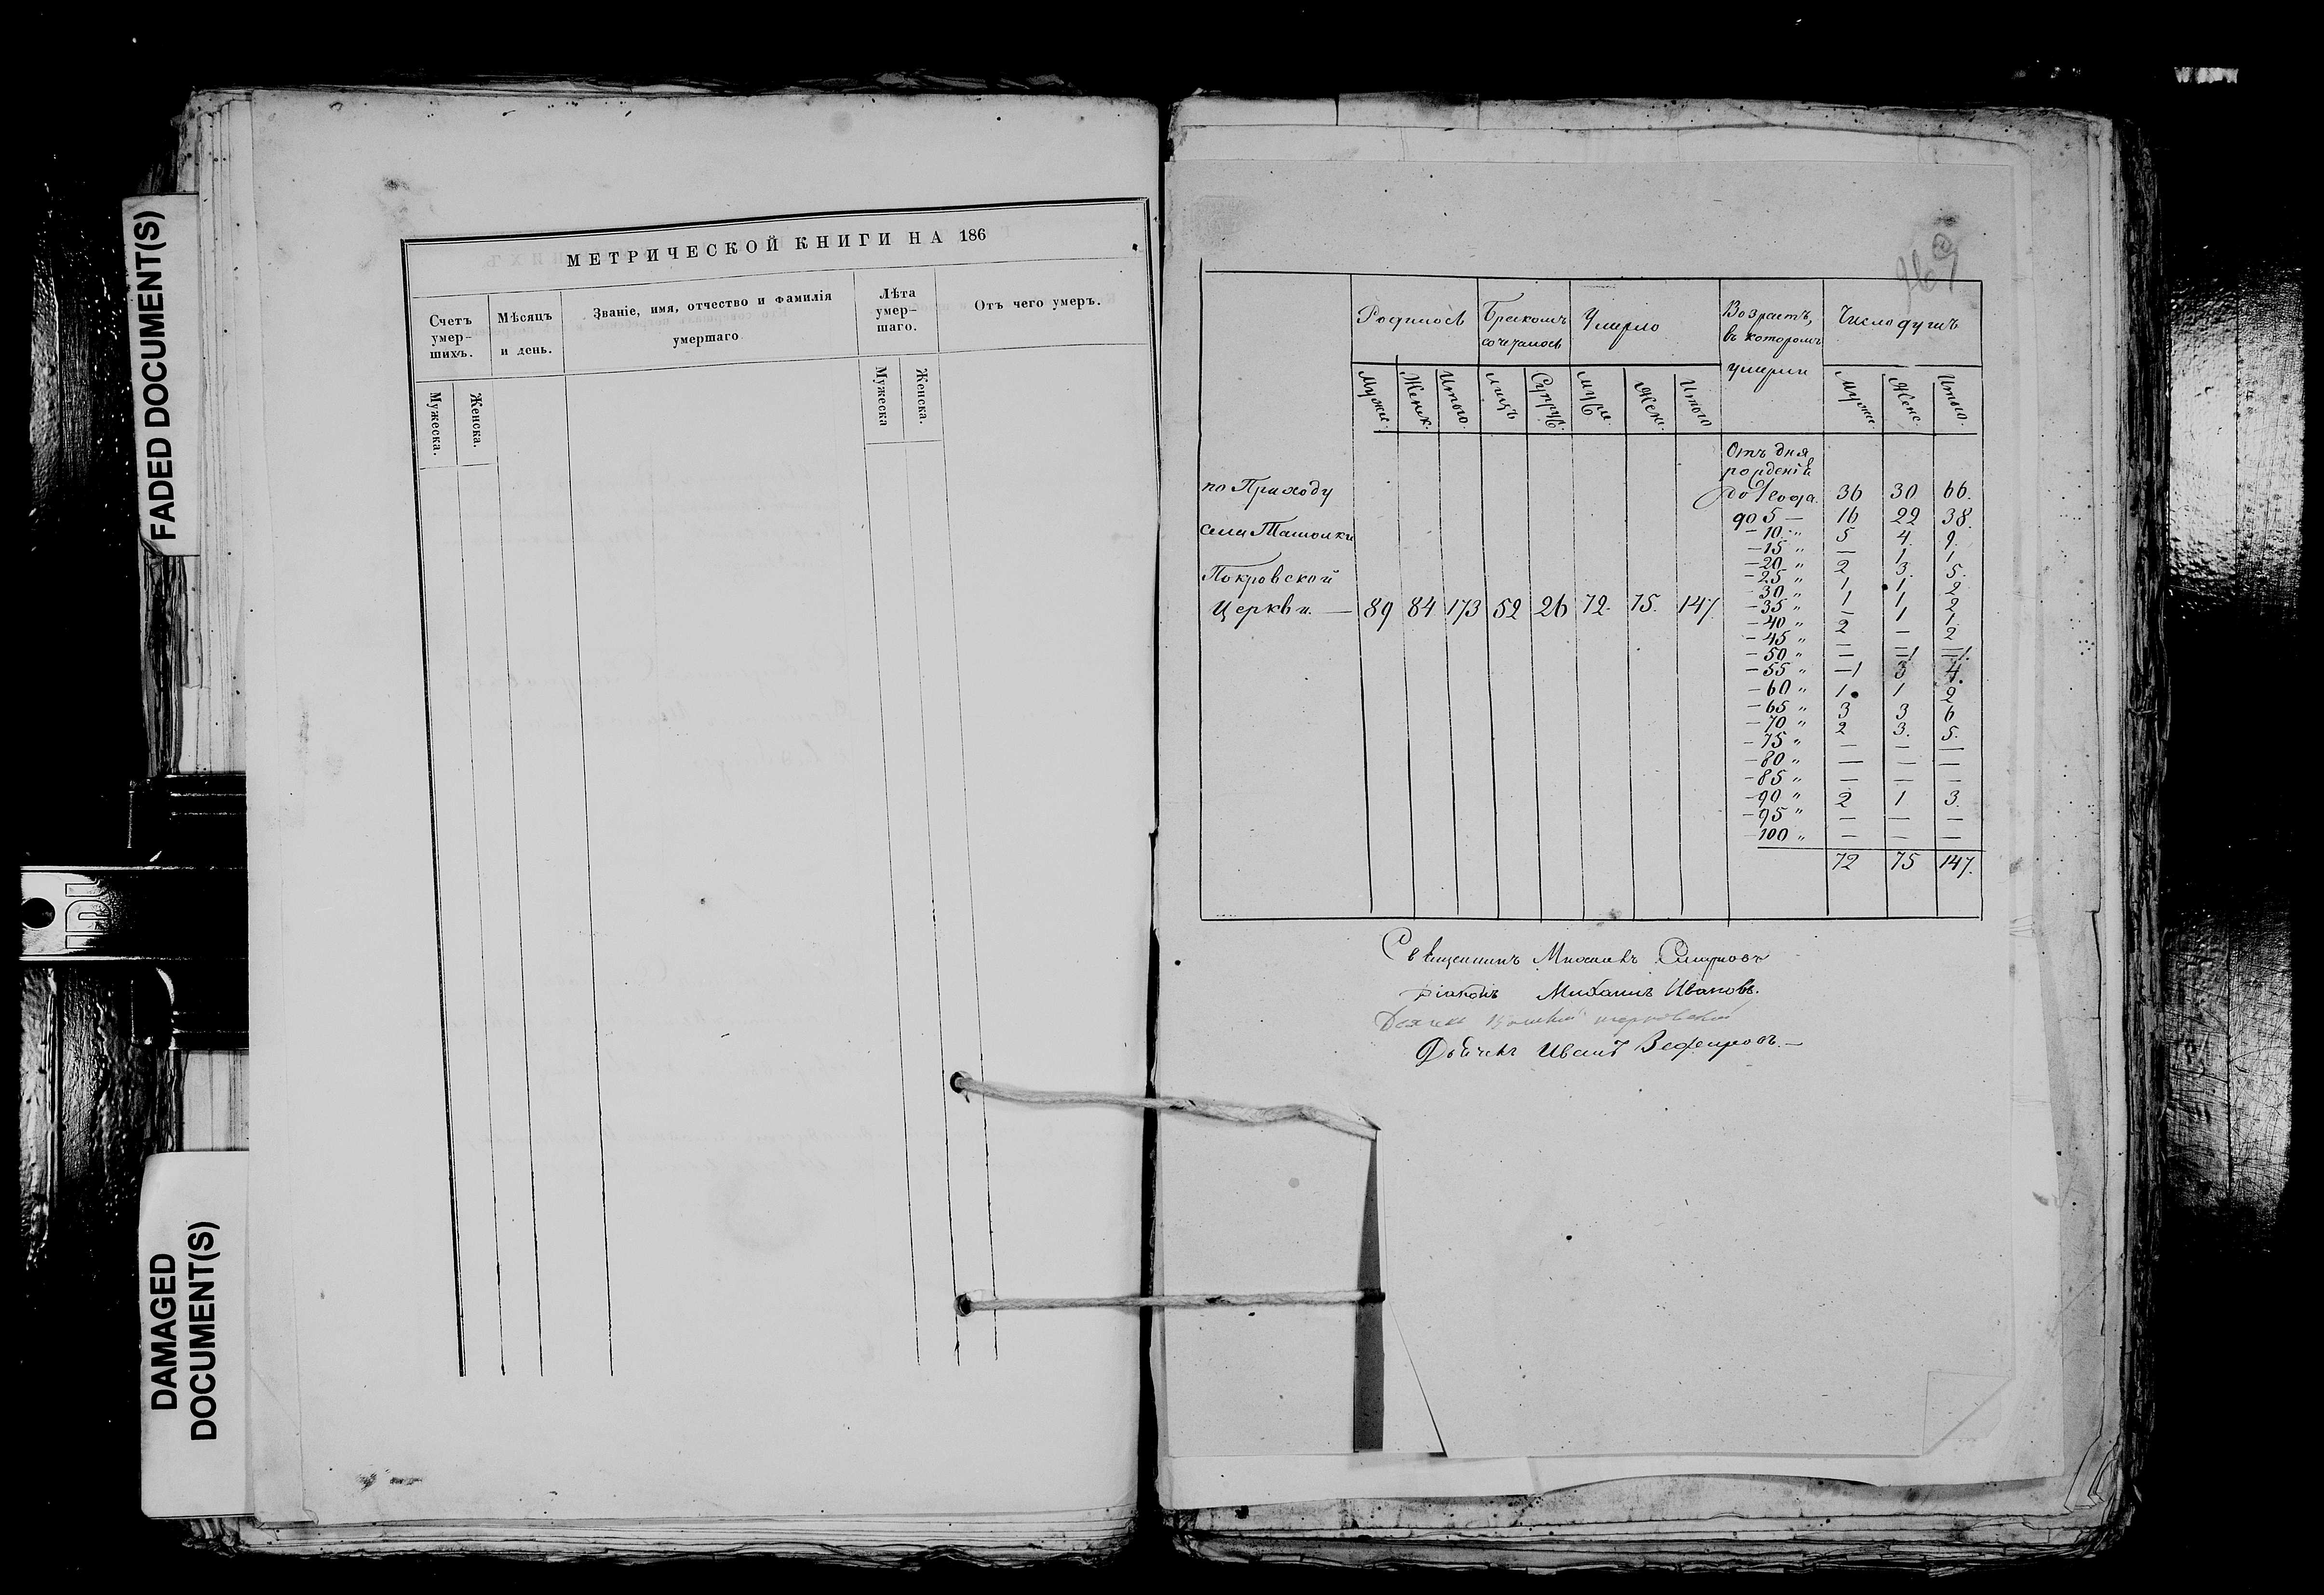 FADED DOCUMENT(S)
DAMAGED
DOCUMENT(S)
МЕТРИЧЕСКОЙ КНИГИ НА 186
Счетъ умер-шихъ.
Мѣсяцъ и день.
Званіе, имя, отчество и фамилія умершаго
Лѣта умер-шаго.
Отъ чего умеръ.
Мужеска.
Женска.
Мужеска
Женска.
Родилось
Бракомъ сочеталось
Умерло
Возрастъ, въ которомъ умерли
Число душъ
Муже.
Женск.
Итого.
лицъ
Супруж.
Муж.
Жен.
Итого
Муже.
Женс.
Итого.
Отъ дня
рожденія
до 1 года. 36 30 66.
до 5 — 16 22 38.
— 10 „ 5 4. 9.
— 15 „ — 1. 1.
— 20 „ 2 3. 5.
— 25 „ 1 1 2
— 30 „ 1 1 2
— 35 „ — 1 1.
— 40 „ 2 — 2
— 45 „ — — —
— 50 „ — 1 1.
— 55 „ 1 3 4.
— 60 „ 1. 1 2
— 65 „ 3 3 6
— 70 „ 2 3. 5.
— 75 „ — — —
— 80 „ — — —
— 85 „ — — —
— 90 „ 2 1 3.
— 95 „ — — —
— 100 „ — — —
72 75 147.
по Приходу
села Ташолки
Покровской
Церкви. — 89 84 173 52 26 72. 75. 147.
Священникъ Михаилъ Смирновъ
Діаконъ Михаилъ Ивановъ.
Дьячекъ
Дьячекъ Иванъ